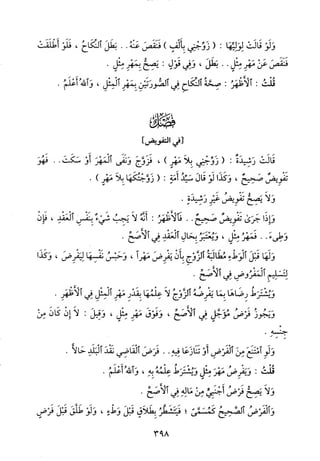 وَلَوْ قَالَتْ لِوَلِيِّهَا : ( زَوِّجْنِي بِأَلْفٍ ) فَنَقَصَ عَنْهُ . . بَطَلَ ٱلنِّكَاحُ ، فَلَوْ أَطْلَقَتْ
فَنَقَصَ عَنْ مَهْرِ مِثْلٍ . . بَطَلَ ، وَفِي قَوْلٍ : يَصِحُّ بِمَهْرِ مِثْلٍ .
قُلْتُ : ٱلأَظْهَرُ : صِحَّةُ ٱلنِّكَاحِ فِي ٱلصُّورَتَيْنِ بِمَهْرِ ٱلْمِثْلِ ، وَٱللهُ أَعْلَمُ .
فَصْلٌ
[في التفويض]
قَالَتْ رَشِيدَةٌ : ( زَوِّجْنِي بِلاَ مَهْرٍ ) ، فَزَوَّجَ وَنَفَى ٱلْمَهْرَ أَوْ سَكَتَ . . فَهُوَ
تَفْوِيضٌ صَحِيحٌ ، وَكَذَا لَوْ قَالَ سَيِّدُ أَمَةٍ : ( زَوَّجْتُكَهَا بِلاَ مَهْرٍ ) .
وَلاَ يَصِحُّ تَفْوِيضُ غَيْرِ رَشِيدَةٍ .
وَإِذَا جَرَىٰ تَفْوِيضٌ صَحِيحٌ . . فَٱلأَظْهَرُ : أَنَّهُ لاَ يَجِبُ شَيْءٌ بِنَفْسِ ٱلْعَقْدِ ، فَإِنْ
وَطِىءَ . . فَمَهْرُ مِثْلٍ ، وَيُعْتَبَرُ بِحَالِ ٱلْعَقْدِ فِي ٱلأَصَحِّ .
وَلَهَا قَبْلَ ٱلْوَطْءِ مُطَالَبَةُ ٱلزَّوْجِ بِأَنْ يَفْرِضَ مَهْراً ، وَحَبْسُ نَفْسِهَا لِيَفْرِضَ ، وَكَذَا
لِتَسْلِيمِ ٱلْمَفْرُوضِ فِي ٱلأَصَحِّ .
وَيُشْتَرَطُ رِضَاهَا بِمَا يَفْرِضُهُ ٱلزَّوْجُ لاَ عِلْمُهَا بِقَدْرِ مَهْرِ ٱلْمِثْلِ فِي ٱلأَظْهَرِ .
وَيَجُوزُ فَرْضُ مُؤَجَّلٍ فِي ٱلأَصَحِّ ، وَفَوْقَ مَهْرِ مِثْلٍ ، وَقِيلَ : لاَ إِنْ كَانَ مِنْ
جِنْسِهِ .
وَلَوِ ٱمْتَنَعَ مِنَ ٱلْفَرْضِ أَوْ تَنَازَعَا فِيهِ . . فَرَضَ ٱلْقَاضِي نَقْدَ ٱلْبَلَدِ حَالاًّ .
قُلْتُ : وَيَفْرِضُ مَهْرَ مِثْلٍ وَيُشْتَرَطُ عِلْمُهُ بِهِ ، وَٱللهُ أَعْلَمُ .
وَلاَ يَصِحُّ فَرْضُ أَجْنَبِيٍّ مِنْ مَالِهِ فِي ٱلأَصَحِّ .
وَٱلْفَرْضُ ٱلصَّحِيحُ كَمُسَمّىً ؛ فَيَتَشَطَّرُ بِطَلاَقٍ قَبْلَ وَطْءٍ ، وَلَوْ طَلَّقَ قَبْلَ فَرْضٍ
٣٩٨